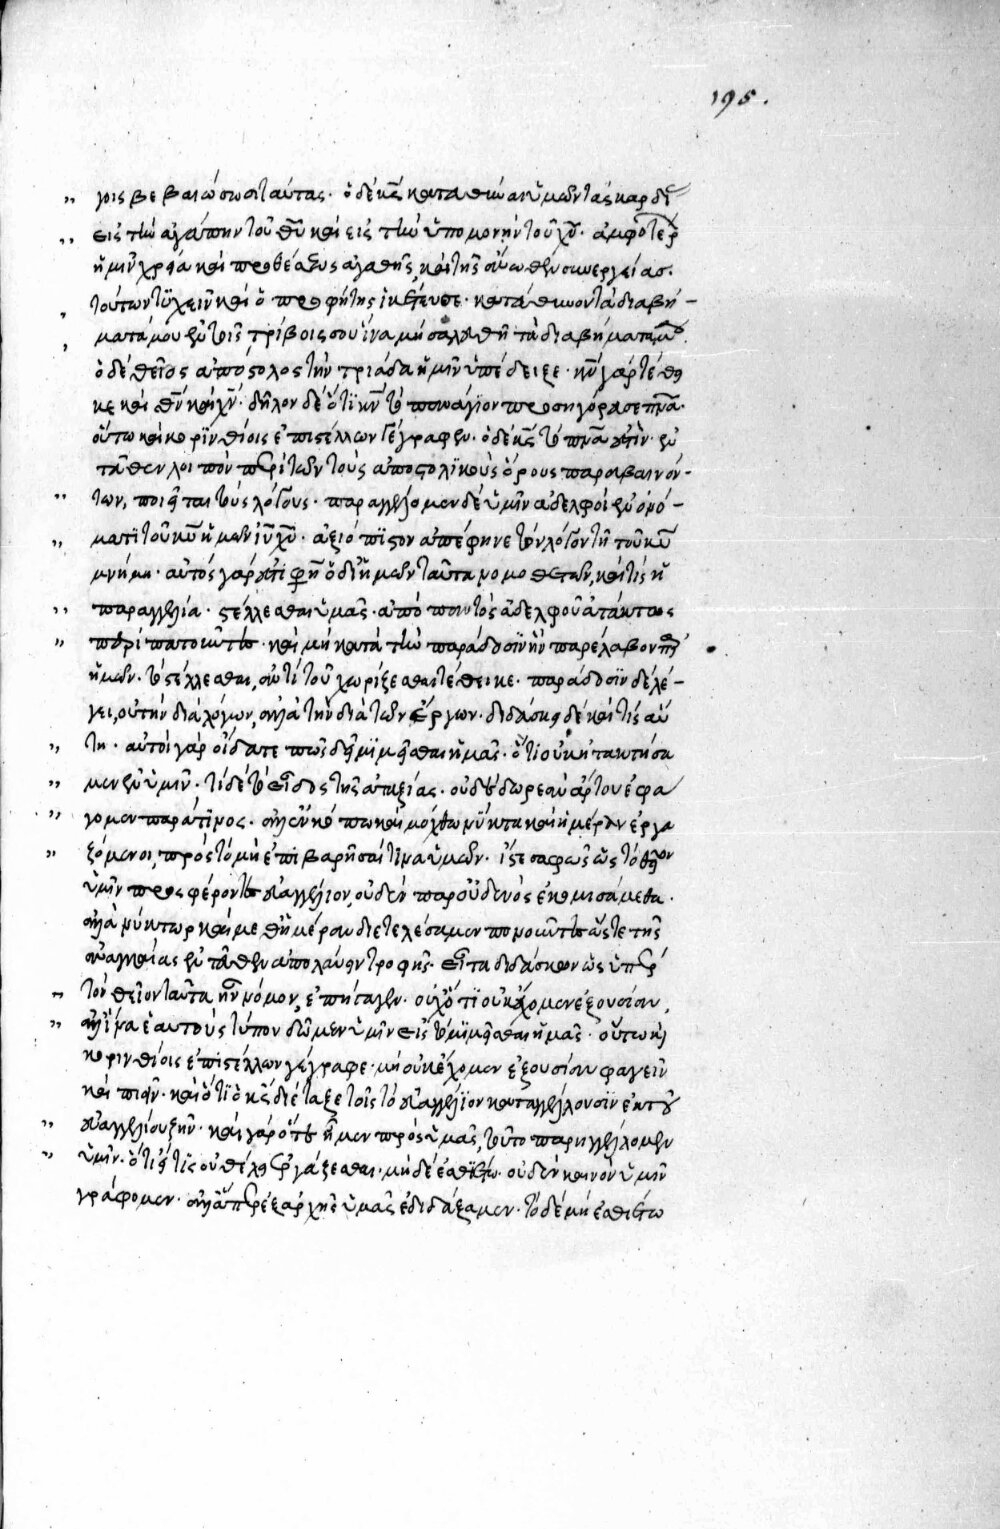 195.
γοις βεβαιώσωσι ταύτας· ὁ δὲ κς κατευθύναι ὑμῶν τὰς καρδίας
εἰς τὴν ἀγάπην τοῦ θυ καὶ εἰς τὴν ὑπομονὴν τοῦ χυ· ἀμφοτέρων
ἡμῖν χρεία καὶ προθέσεως ἀγαθῆς, καὶ τῆς ἄνωθεν συνεργείας.
τούτων τυχεῖν καὶ ὁ προφήτης ἱκέτευσε· κατεύθυνον τὰ διαβή-
ματά μου ἐν ταῖς τρίβοις σου ἵνα μὴ σαλευθῆ τὰ διαβήματά μου.
ὁ δὲ θεῖος ἀπόστολος τὴν τριάδα ἡμῖν ὑπέδειξε· κν γὰρ τέθει
κε καὶ θν καὶ χν· δῆλον δὲ ὅτι κν τὸ πανάγιον προσηγόρευσε πνα.
οὕτω καὶ κορινθίοις ἐπιστέλλων γέγραφεν· ὁ δὲ κς τὸ πνα ἐστίν· ἐν
τεῦθεν λοιπὸν περὶ τῶν τοὺς ἀποστολικοὺς ὅρους παραβαινόν-
των, ποιεῖται τοὺς λόγους· παραγγέλλομεν δὲ ὑμῖν ἀδελφοὶ ἐν ὀνό-
ματι τοῦ κυ ἡμῶν ιυ χυ· ἀξιόπιστον ἀπέφηνε τὸν λόγον τῆ τοῦ κυ
μνήμη· αὐτὸς γὰρ ἐστι φησὶ ὁ δι' ἡμῶν ταῦτα νομοθετῶν, καὶ τίς ἡ
παραγγελία· στέλλεσθαι ὑμᾶς· ἀπὸ παντὸς ἀδελφοῦ ἀτάκτως
περιπατοῦντος· καὶ μὴ κατὰ τὴν παράδοσιν ἣν παρέλαβον παρ'
ἡμῶν· τὸ στέλλεσθαι, ἀντὶ τοῦ χωρίζεσθαι τέθεικε· παράδοσιν δὲ λέ-
γει, οὐ τὴν διὰ λόγων, ἀλλὰ τὴν διὰ τῶν ἔργων· διδάσκει δὲ καὶ τίς αὕ
τη· αὐτοὶ γὰρ οἴδατε πῶς δεῖ μιμεῖσθαι ἡμᾶς· ὅτι οὐκ ἠτακτήσα
μεν ἐν ὑμῖν· τί δὲ τὸ εἶδος τῆς ἀταξίας· οὐδὲ δωρεὰν ἄρτον ἐφά
γομεν παρά τινος· ἀλλ' ἐν κόπω καὶ μόχθω νύκτα καὶ ἡμέραν ἐργα
ζόμενοι, πρὸς τὸ μὴ ἐπιβαρῆσαί τινα ὑμῶν· ἴστε σαφῶς ὡς τὸ θεῖον
ὑμῖν προσφέροντες εὐαγγέλιον, οὐδὲν παρ' οὐδενὸς ἐκομισάμεθα·
ἀλλὰ νύκτωρ καὶ μεθ' ἡμέραν διετελέσαμεν πονοῦντες ὥστε τῆς
ἀναγκαίας ἐντεῦθεν ἀπολαύειν τροφῆς. εἶτα διδάσκων ὡς ὑπὲρ
τὸν θεῖον ταῦτα ἦν νόμον, ἐπήγαγεν· οὐχ ὅτι οὐκ ἔχομεν ἐξουσίαν,
ἀλλ' ἵνα ἑαυτοὺς τύπον δῶμεν ὑμῖν εἰς τὸ μιμεῖσθαι ἡμᾶς· οὕτω καὶ
κορινθίοις ἐπιστέλλων γέγραφε· μὴ οὐκ ἔχομεν ἐξουσίαν φαγεῖν
καὶ πιεῖν· καὶ ὅτι ὁ κς διέταξε τοῖς τὸ εὐαγγέλιον καταγγέλλουσιν ἐκ τοῦ
εὐαγγελίου ζῆν· καὶ γὰρ ὅτε ἦμεν πρὸς ὑμᾶς, τοῦτο παρηγγέλλομεν
ὑμῖν· ὅτι εἴ τις οὐ θέλει ἐργάζεσθαι· μηδὲ ἐσθιέτω· οὐδὲν καινὸν ὑμῖν
γράφομεν· ἀλλ' ἅπερ ἐξ ἀρχῆς ὑμᾶς ἐδιδάξαμεν· τὸ δὲ μὴ ἐσθιέτω